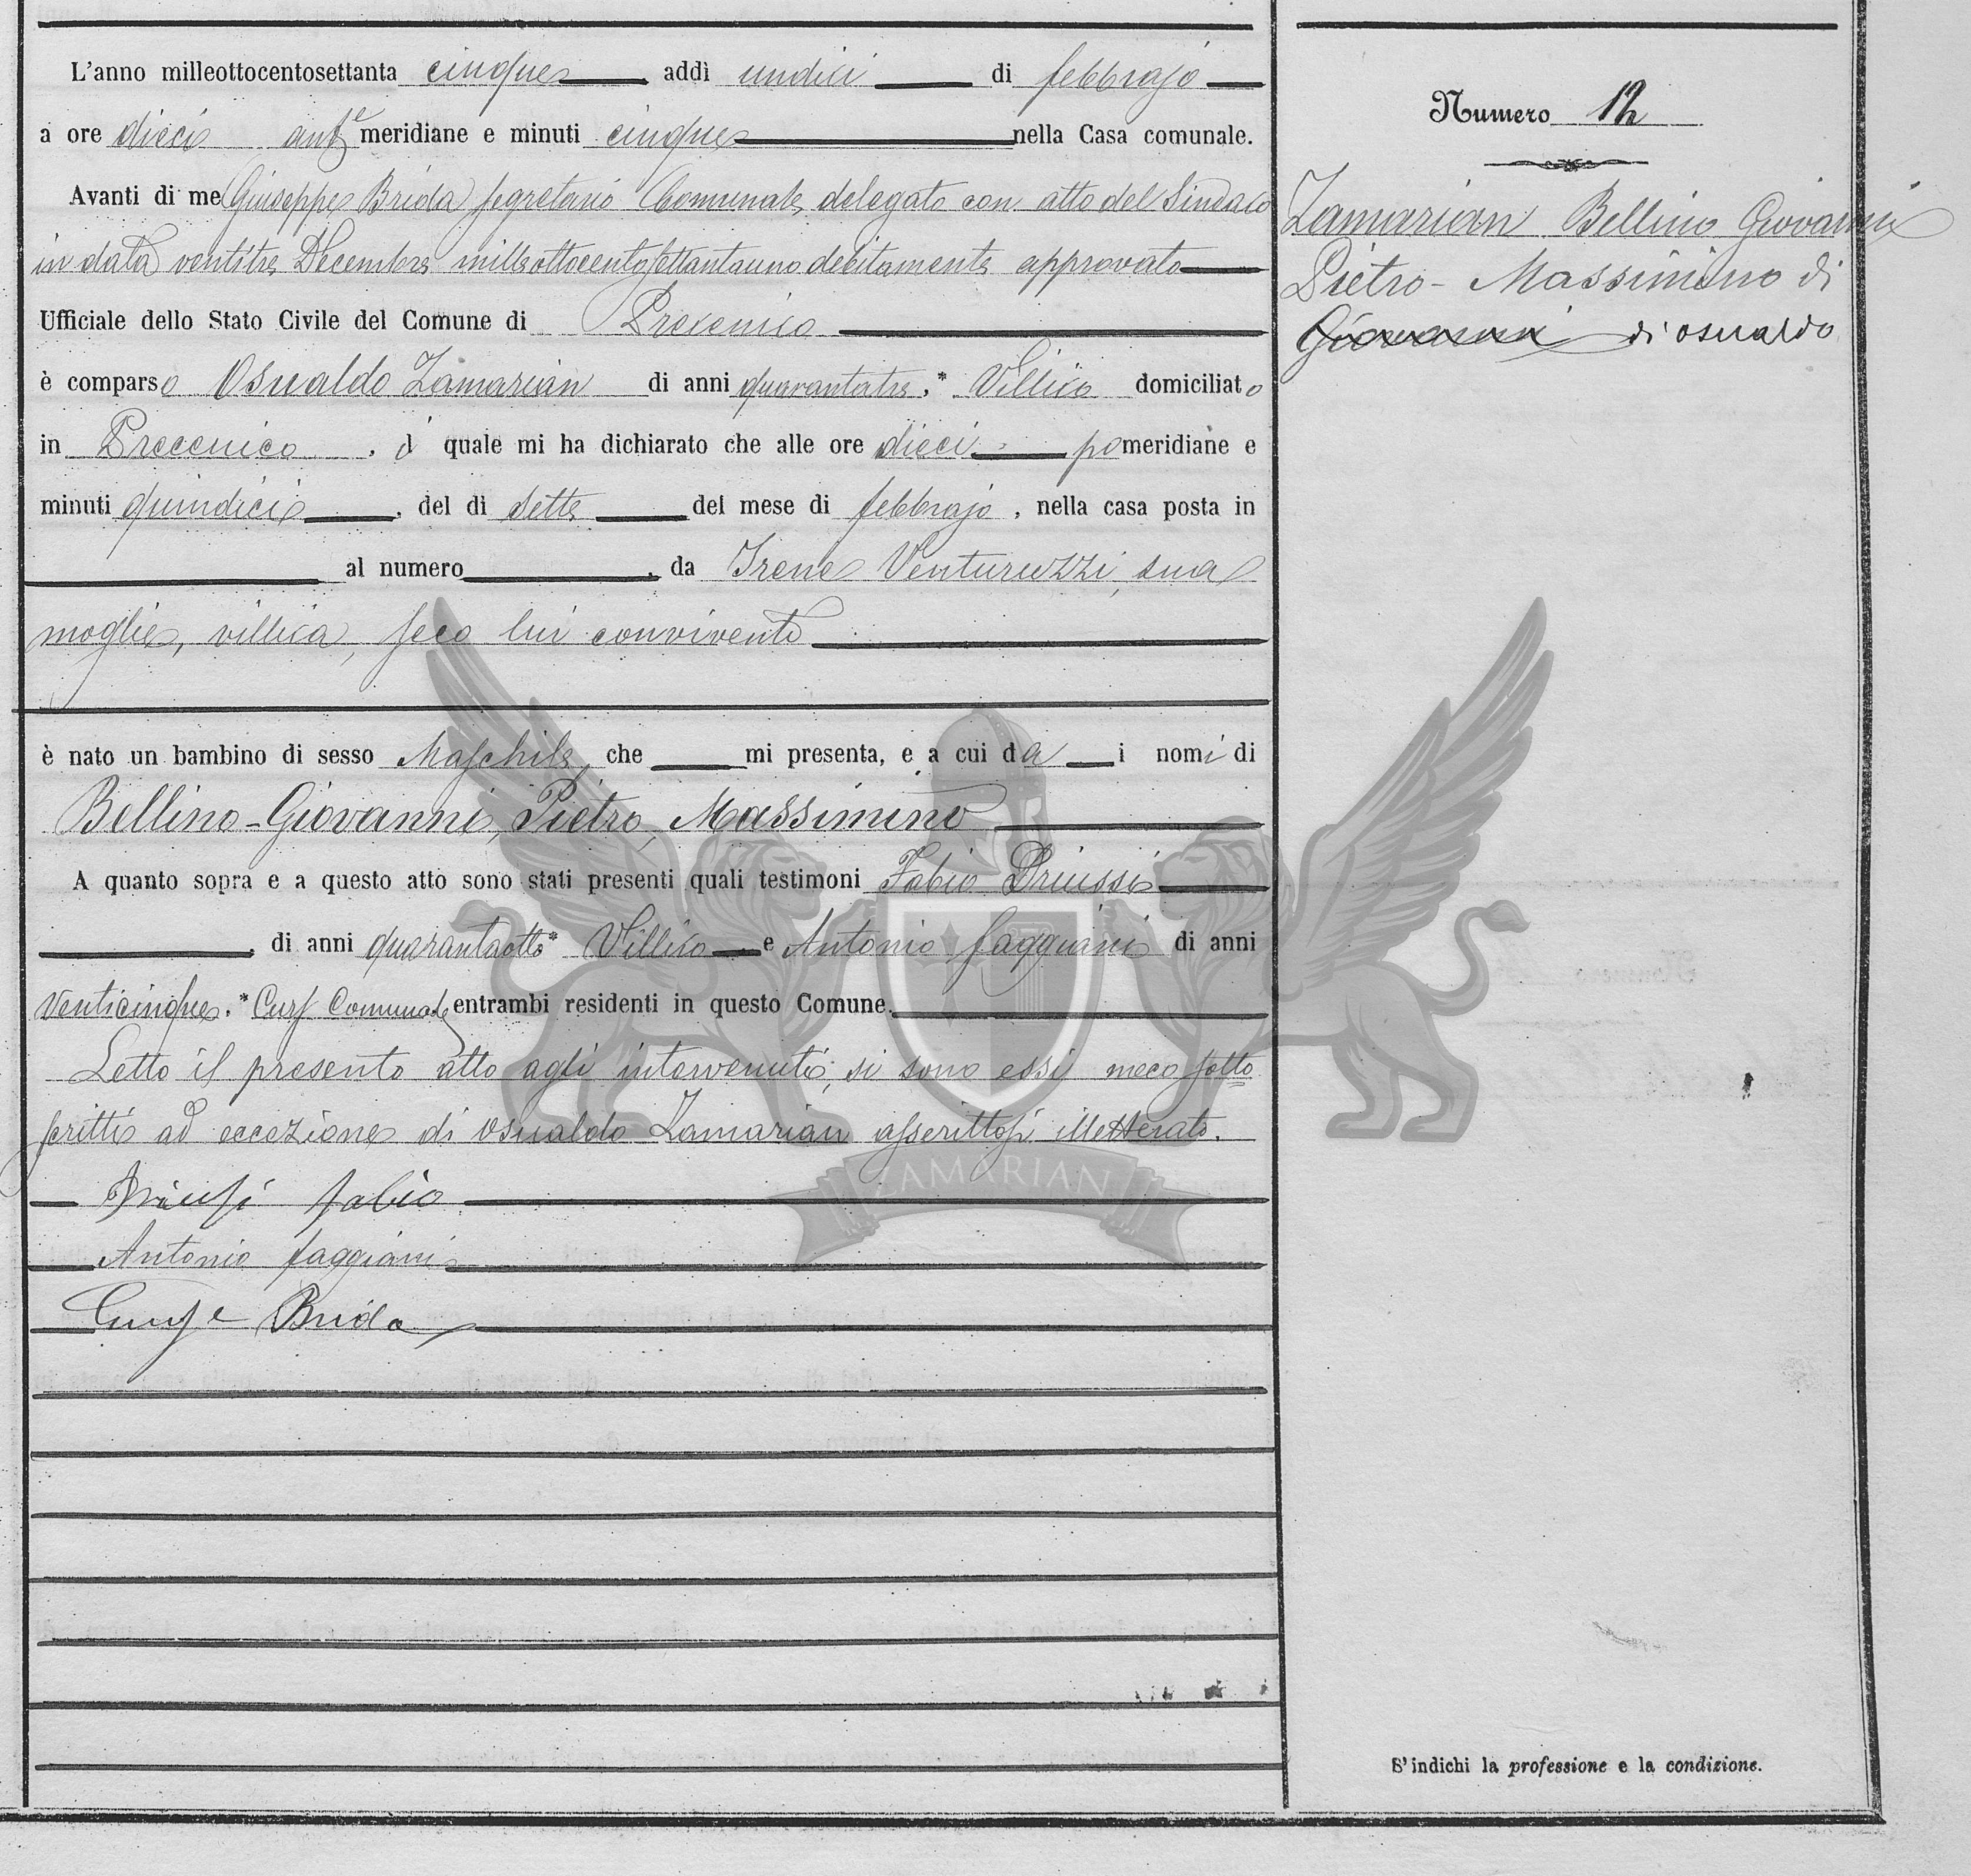 L'anno milleottocentosettanta cinque addì undici di febbrajo
a ore dieci ant.e meridiane e minuti cinque nella Casa comunale.
Avanti di me Giuseppe Brida Segretario Comunale delegato con atto del Sindaco
in data ventitre Decembre milleottocentosettantauno debitamente approvato
Ufficiale dello Stato Civile del Comune di Precenico
è comparso Osualdo Zamarian di anni quarantatre,* Villico domiciliato
in Precenico, il quale mi ha dichiarato che alle ore dieci pomeridiane e
minuti quindici, del dì sette del mese di febbrajo, nella casa posta in
al numero, da Irene Venturuzzi, sua
moglie, villica, seco lui convivente
è nato un bambino di sesso Maschile, che mi presenta, e a cui da i nomi di
Bellino-Giovanni, Pietro, Massimino
A quanto sopra e a questo atto sono stati presenti quali testimoni Fabio Driussi
, di anni quarantaotto* Villico e Antonio Faggiani di anni
Venticinque,* Curs Comunale entrambi residenti in questo Comune.
Letto il presente atto agli intervenuti, si sono essi meco sotto
scritti ad eccezione di Osualdo Zamarian asserittosi illetterato.
Driussi Fabio
Antonio Faggiani
Giuse Brida
Numero 12
Zamarian Bellino Giovanni
Pietro - Massimino di
Giovanni di Osualdo
S'indichi la professione e la condizione.
ZAMARIAN